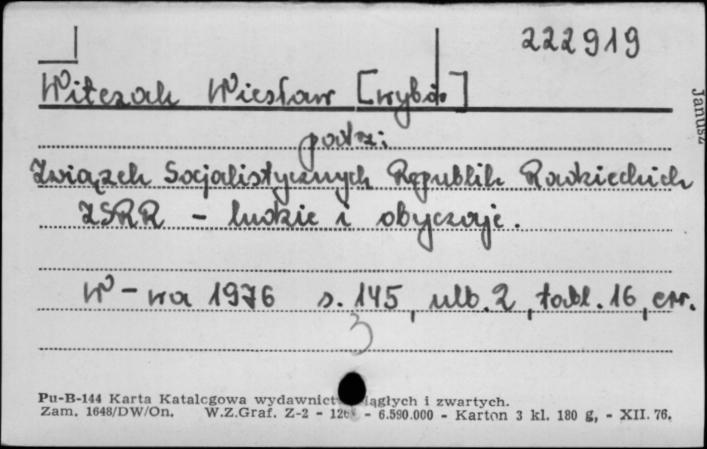 222919
Witczak Wiesław [wybór]
patrz:
Związek Socjalistycznych Republik Radzieckich
ZSRR - ludzie i obyczaje.
W-wa 1976 s. 145, ulb. 2, tabl. 16, err.
3
Pu-B-144 Karta Katalogowa wydawnictw ciągłych i zwartych.
Zam. 1648/DW/On. W.Z.Graf. Z-2 - - 6.590.000 - Karton 3 kl. 180 g, - XII. 76.
Janusz